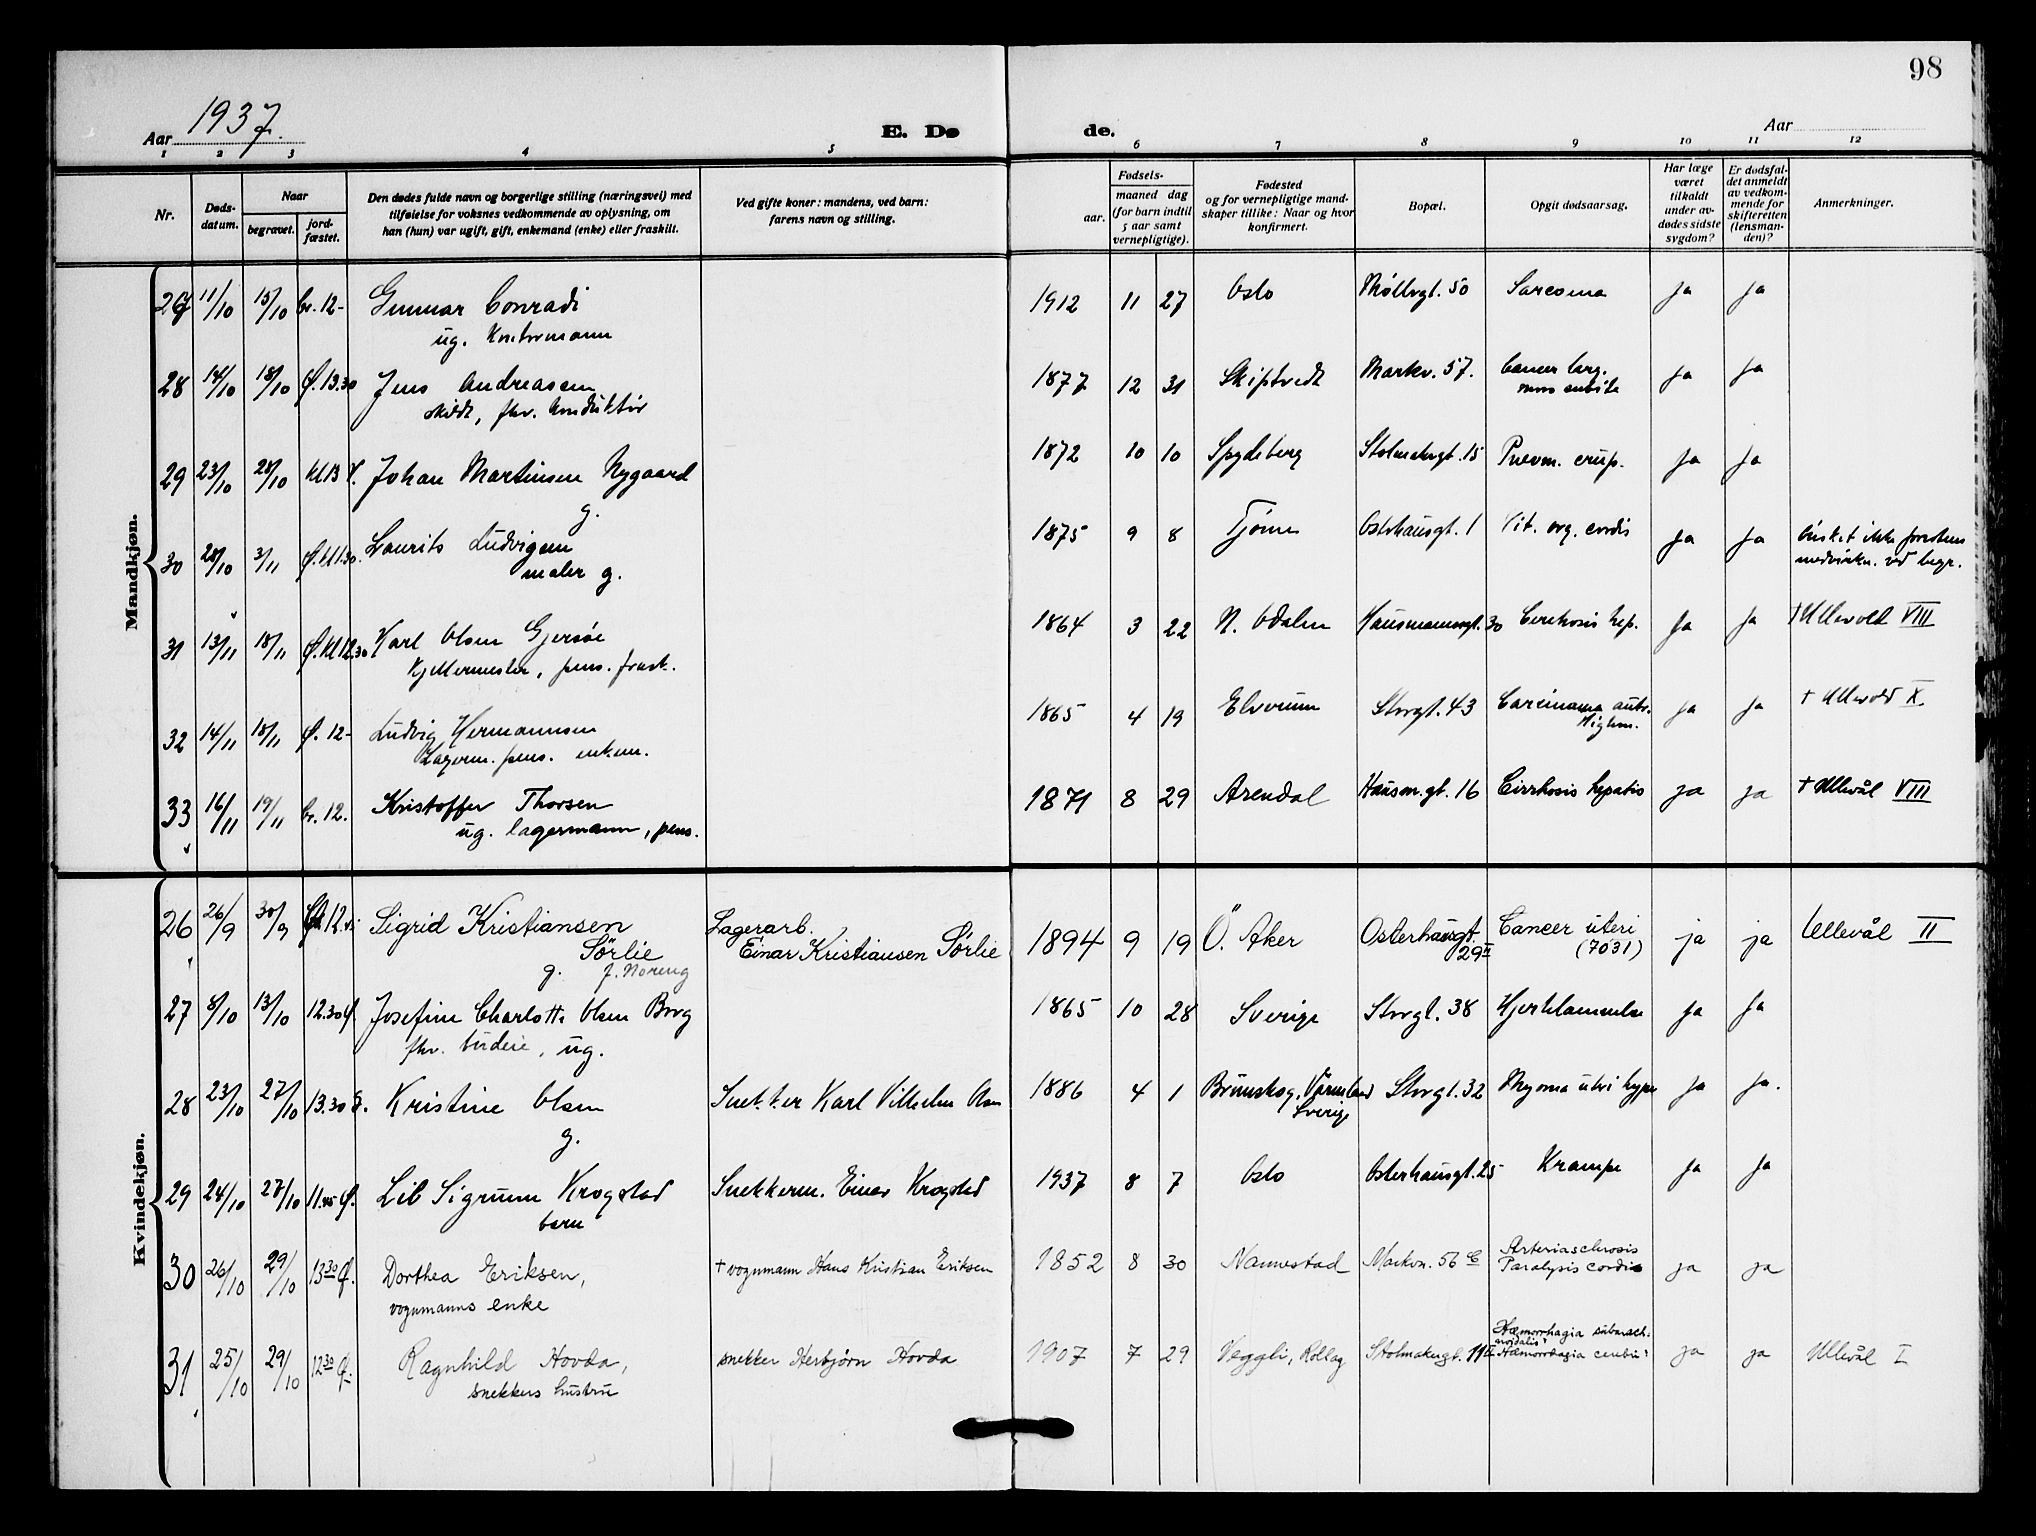 98
Aar 1937.
E. Dø
de.
Aar
1 2 3 4 5 6 7 8 9 10 11 12
Nr.
Døds-
datum.
Naar
begravet.
jord-
fæstet.
Den dødes fulde navn og borgerlige stilling (næringsvei) med
tilføielse for voksnes vedkommende av oplysning, om
han (hun) var ugift, gift, enkemand (enke) eller fraskilt.
Ved gifte koner: mandens, ved barn:
farens navn og stilling.
Fødsels-
aar.
maaned dag
(for barn indtil
5 aar samt
vernepligtige).
Fødested
og for vernepligtige mand-
skaper tillike: Naar og hvor
konfirmert.
Bopæl.
Opgit dødsaarsag.
Har læge
været
tilkaldt
under av-
dødes sidste
sygdom?
Er dødsfal-
det anmeldt
av vedkom-
mende for
skifteretten
(lensman-
den)?
Anmerkninger.
Mandkjøn.
27 11/10 15/10 kr. 12- Gunnar Conradi 1912 11 27 Oslo Møllergt. 50 Sarcoma ja ja
ug. kontormann
28 14/10 18/10 Ø. 13.30 Jens Andreasen 1877 12 31 Skiptvedt Markv. 57. Cancer
skildt, fhv. konduktør ja ja
29 23/10 28/10 kl 13 V. Johan Martinsen Nygaard 1872 10 10 Spydeberg Stolmakergt. 15 Pnevm. crup. ja ja
g.
30 28/10 3/11 Ø. kl 1.30. Laurits Ludvigsen 1875 9 8 Tjøme Osterhausgt. 1 Vit. org. cordis ja ja ønsket ikke prestens
maler g. medvirkn. ved begr.
31 13/11 18/11 Ø. kl 12.30 Karl Olsen Gjersøe 1864 3 22 N. Odalen Hausmannsgt. 30 Cirrhosis hep. ja ja † Ullevold VIII
Kjellermester, pens. frask.
32 14/11 18/11 Ø. 12- Ludvig Hermannsen 1865 4 19 Elverum Storgt. 43 Carcinoma ja ja † Ullevold X
Lagerm. pens. enkem.
33 16/11 19/11 kr. 12. Kristoffer Thorsen 1871 8 29 Arendal Hausm.gt. 16 Cirrhosis hepatis ja ja † Ullevål VIII
ug. lagermann, pens.
Kvindekjøn.
26 26/9 30/9 12 Sigrid Kristiansen Lagerarb. 1894 9 19 Ö. Aker Osterhausgt. Cancer uteri ja ja Ullevål II
Sørlie Einar Kristiansen Sørlie 29 II (7031)
g. f. Noreng
27 8/10 13/10 12.30 Ø. Josefine Charlotte Olsen Borg 1865 10 28 Sverige Storgt. 38 Hjertelammelse ja ja
fhv. budeie, ug.
28 23/10 27/10 13.30 Kristine Olsen Snekker Karl Vilhelm Olsen 1886 4 1 Brunskog, Värmland Storgt. 32 Myoma uteri ja ja.
g. Sverige
29 24/10 27/10 11.45 Ø. Lil Sigrunn Krogstad Snekkerm. Einar Krogstad 1937 8 7 Oslo Osterhausgt. 25 Krampe ja ja
barn
30 26/10 29/10 13 30 Ø. Dorthea Eriksen, † vognmann Hans Kristian Eriksen 1852 8 30 Nannestad Markvn. 56 c Arteriasclerosis
vognmanns enke Paralysis cordis ja ja
31 25/10 29/10 12 30 Ø. Ragnhild Hovda, snekker Herbjørn Hovda 1907 7 29 Veggli, Rollag Stolmakergt. 11 II Hæmorrhagia subarach-
snekkers hustru noidalis? Hæmorrhagia cerebri? ja ja Ullevål I